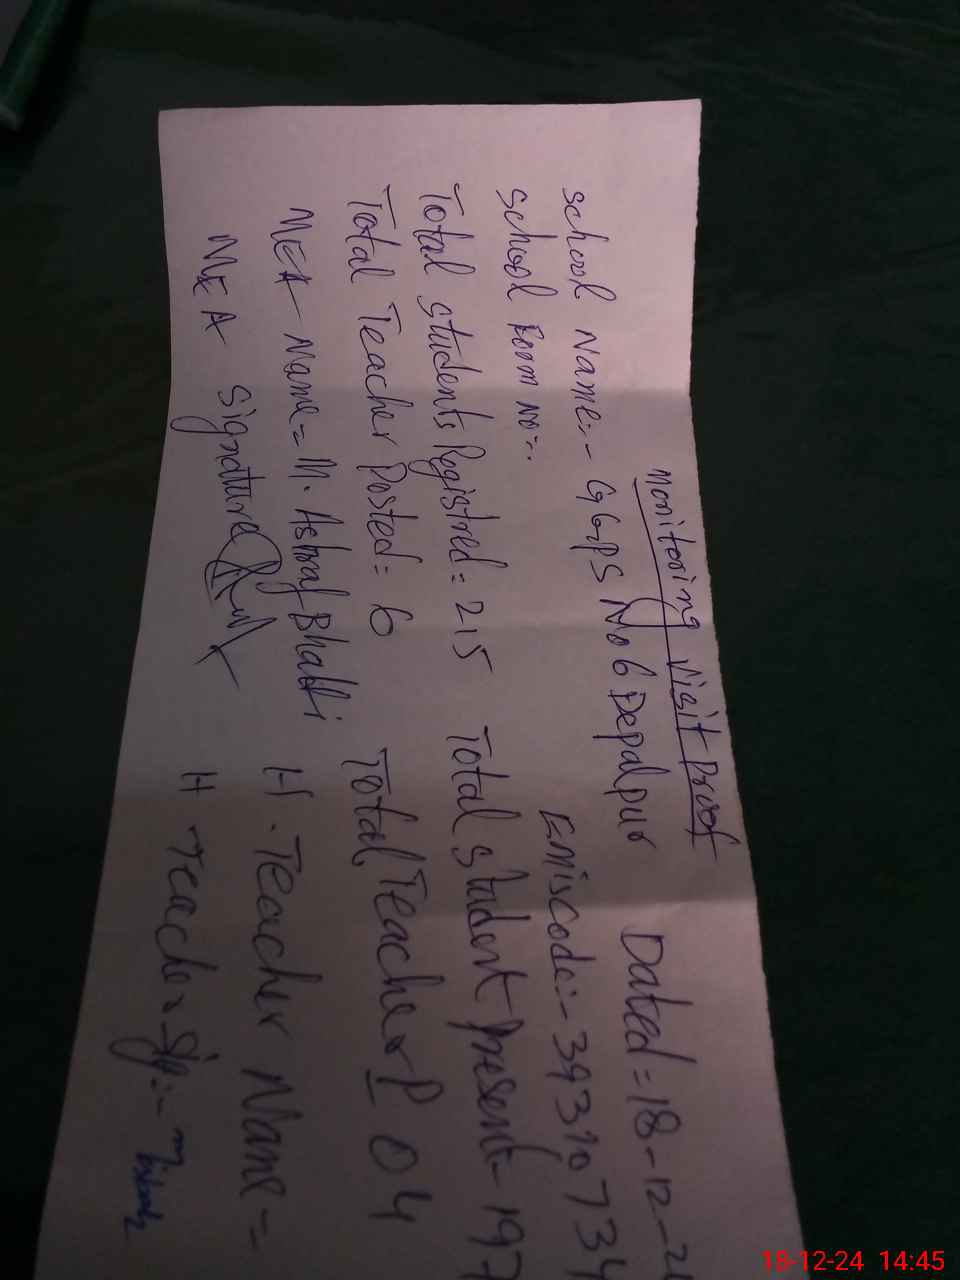 Monitoring Visit Proof
School Name:- GGPS No 6 Depalpur Dated = 18-12-24
School Room No:-. Emiscode:- 39310734
Total students Registred = 215 Total student Present- 197
Total Teacher Posted = 6 Total Teacher P 04
MEA Name = M. Ashraf Bhatti H. Teacher Name =
MEA Signature H Teacher Sig:-
18-12-24 14:45